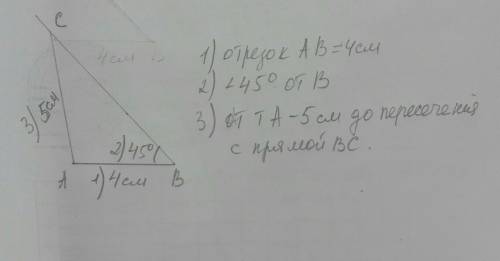 C
4см
1) отрезок АВ=4см
2) <45° от В
3) от т А-5см до пересечения
с прямой ВС.
3) 5см
2) 45°
А 1) 4см В